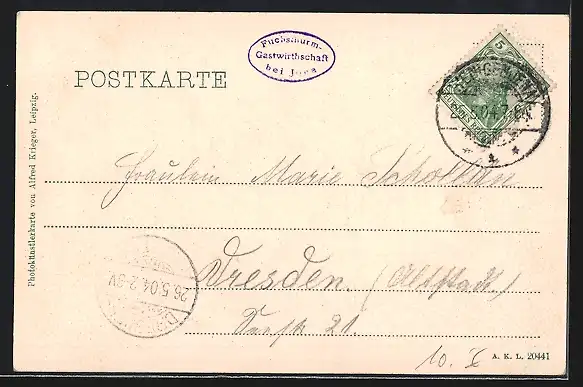 Fuchsthurm-
Gastwirthschaft
bei Jena
POSTKARTE
5
Fräulein Marie
Dresden. (Altstadt)
21.
26.5.04.2-3V
Photokünstlerkarte von Alfred Krieger, Leipzig.
A. K. L. 20441
10.